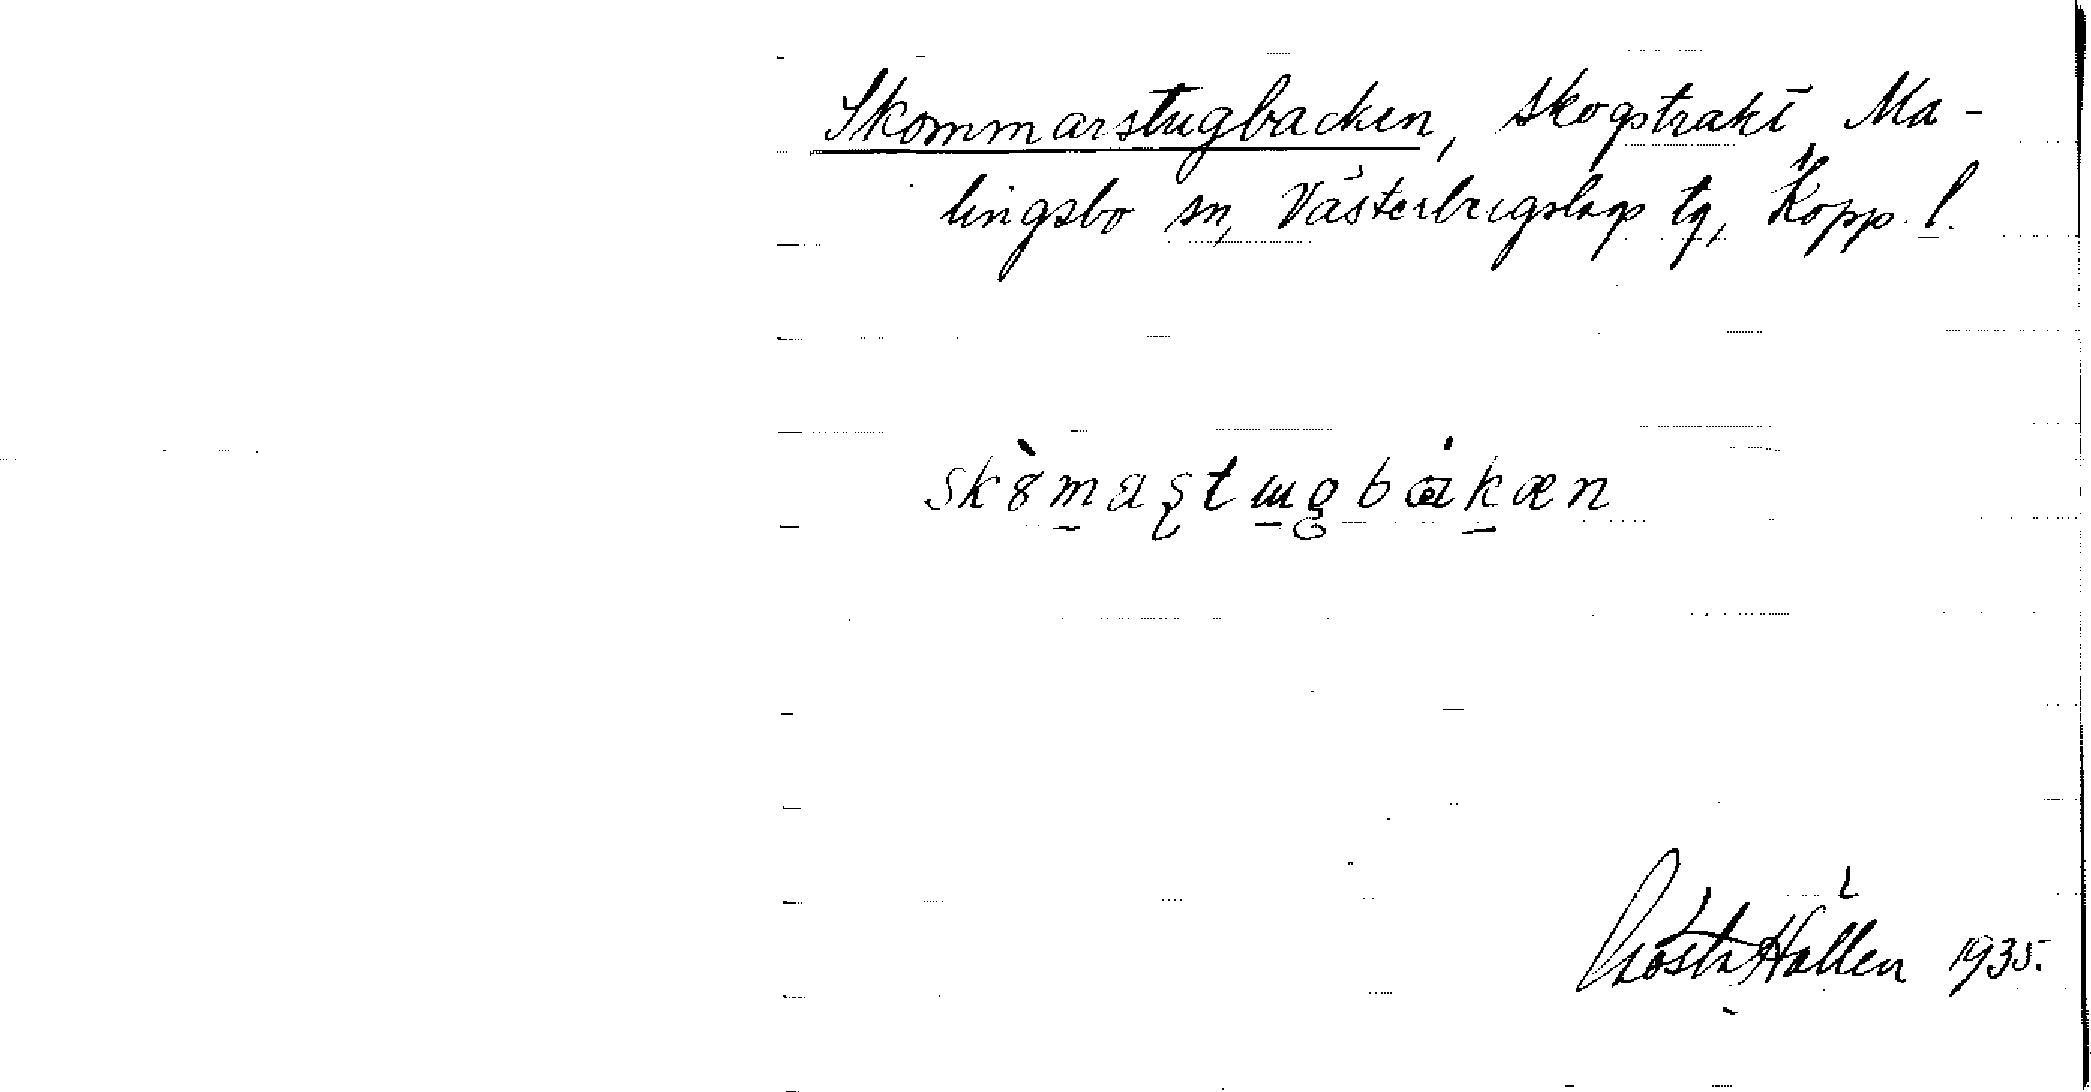 Skommarstugbacken, skogstrakt Ma-
lingsbo sn, Västerbergslags tg, Kopp. l.
Gösta Hallén 1935.